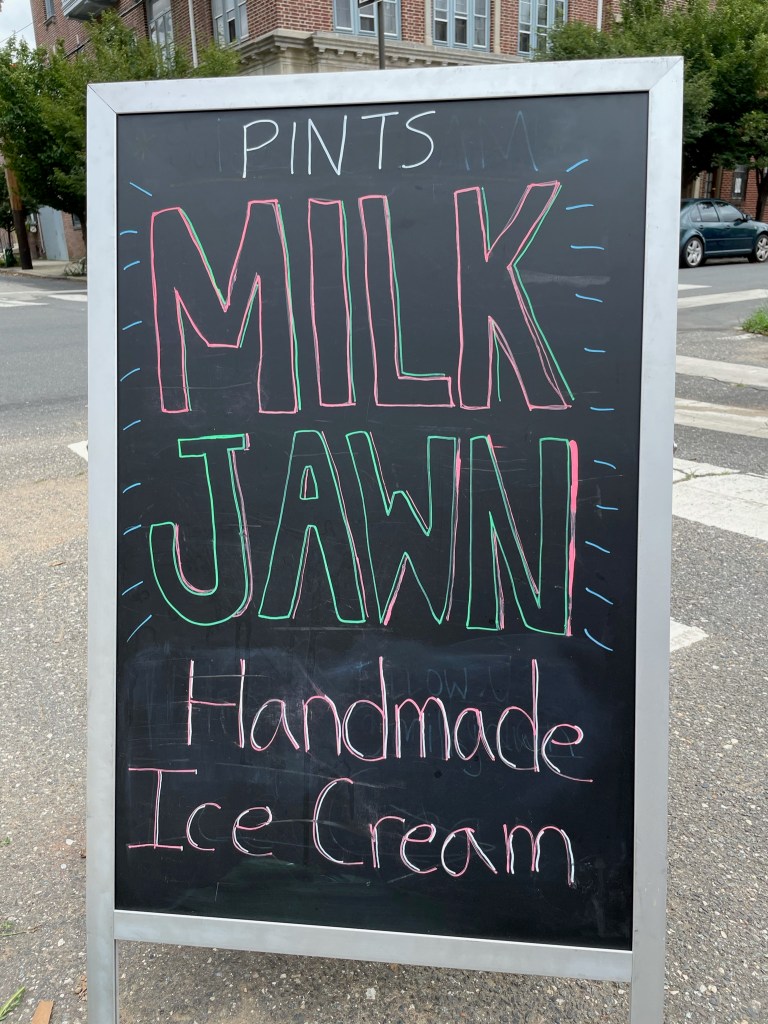 PINTS
MILK
JAWN
Handmade
Ice Cream